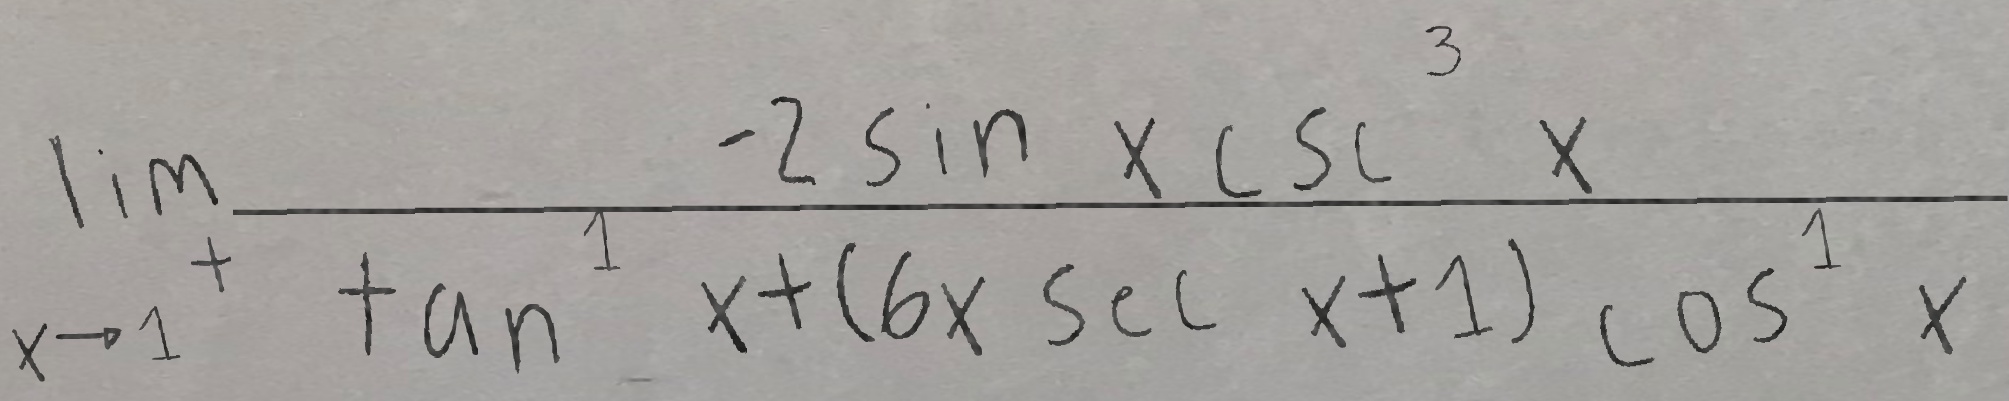 \lim_{x \to 1^+} \frac{-2 \sin x \csc^3 x}{\tan^1 x + (6x \sec x + 1) \cos^1 x}